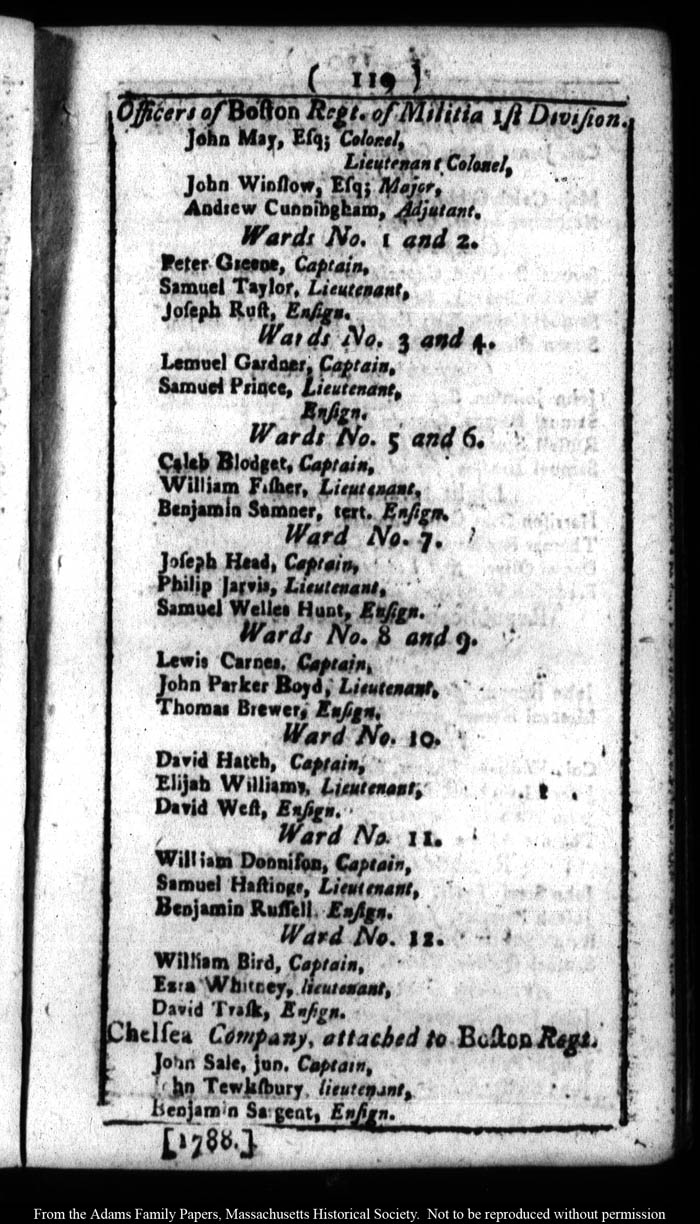 ( 119 )
Officers of Boſton Regt. of Militia 1ſt Diviſion.
John May, Eſq; Colonel,
Lieutenant Colonel,
John Winſlow, Eſq; Major,
Andrew Cunningham, Adjutant.
Wards No. 1 and 2.
Peter Greene, Captain,
Samuel Taylor, Lieutenant,
Joſeph Ruſt, Enſign.
Wards No. 3 and 4.
Lemuel Gardner, Captain,
Samuel Prince, Lieutenant,
Enſign.
Wards No. 5 and 6.
Caleb Blodget, Captain,
William Fiſher, Lieutenant,
Benjamin Sumner, tert. Enſign.
Ward No. 7.
Joſeph Head, Captain,
Philip Jarvis, Lieutenant,
Samuel Welles Hunt, Enſign.
Wards No. 8 and 9.
Lewis Carnes. Captain,
John Parker Boyd, Lieutenant,
Thomas Brewer, Enſign.
Ward No. 10.
David Hatch, Captain,
Elijah Williams, Lieutenant,
David Weſt, Enſign.
Ward No. 11.
William Donniſon, Captain,
Samuel Haſtings, Lieutenant,
Benjamin Ruſſell. Enſign.
Ward No. 12.
William Bird, Captain,
Ezra Whitney, lieutenant,
David Traſk, Enſign.
Chelſea Company, attached to Boſton Regt.
John Sale, jun. Captain,
John Tewkſbury, lieutenant,
Benjamin Sargent, Enſign.
[1788.]
From the Adams Family Papers, Massachusetts Historical Society. Not to be reproduced without permission